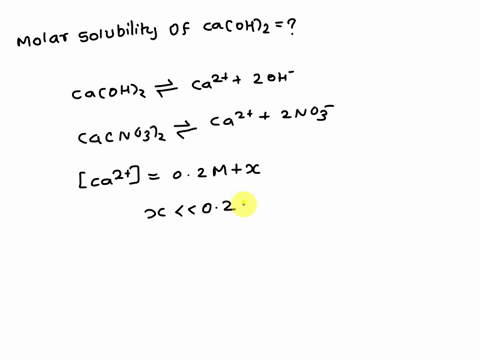 Molar solubility of Ca(OH)₂ = ?
Ca(OH)₂ ⇌ Ca²⁺ + 2OH⁻
Ca(NO₃)₂ ⇌ Ca²⁺ + 2NO₃⁻
[Ca²⁺] = 0.2 M + x
x << 0.2